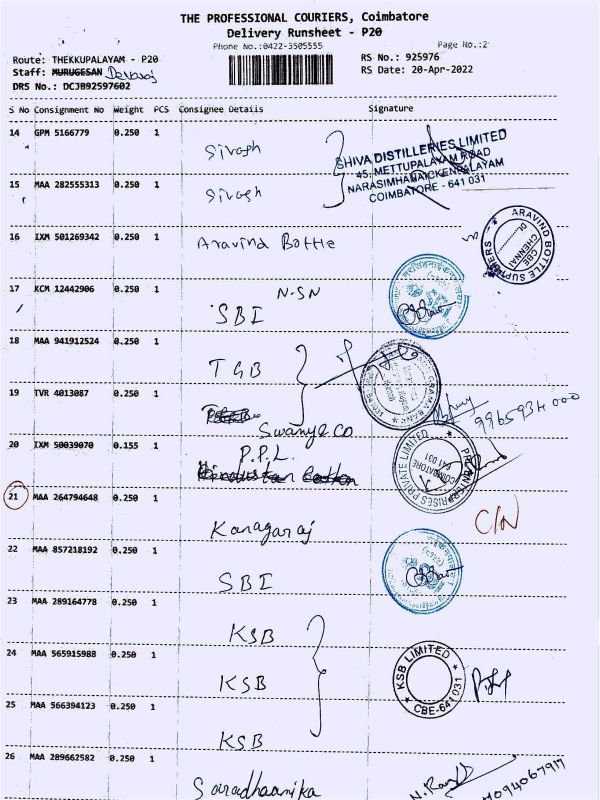 THE PROFESSIONAL COURIERS, Coimbatore
Delivery Runsheet - P20
Phone No.:0422-3505555
Page No.:2
Route: THEKKUPALAYAM - P20
RS No.: 925976
Staff: MURUGESAN Devaraj
RS Date: 20-Apr-2022
DRS No.: DCJB92597602
S No Consignment No Weight PCS Consignee Details Signature
14 GPM 5166779 0.250 1
Sivash
SHIVA DISTILLERIES LIMITED
45, METTUPALAYAM ROAD
NARASIMHANAICKENPALAYAM
COIMBATORE - 641 031
15 MAA 282555313 0.250 1
Sivash
16 IXM 501269342 0.250 1
Aravind Bottle
ARAVIND BOTTLE SUPPLIERS
CBE
CHENNAI
17 KCM 12442906 0.250 1
N-SN
SBI
18 MAA 941912524 0.250 1
TGB
GRAMA BANK
19 TVR 4013087 0.250 1
Swany & CO
9965934000
20 IXM 50039070 0.155 1
P.P.L.
Hindustan Cotton
ENTERPRISES PRIVATE LIMITED
COIMBATORE
641 031
21 MAA 264794648 0.250 1
Kanagaraj
C/N
22 MAA 857218192 0.250 1
SBI
23 MAA 289164778 0.250 1
KSB
24 MAA 565915988 0.250 1
KSB
KSB LIMITED
CBE-641 031
25 MAA 566394123 0.250 1
KSB
26 MAA 289662582 0.250 1
Saradhaanika